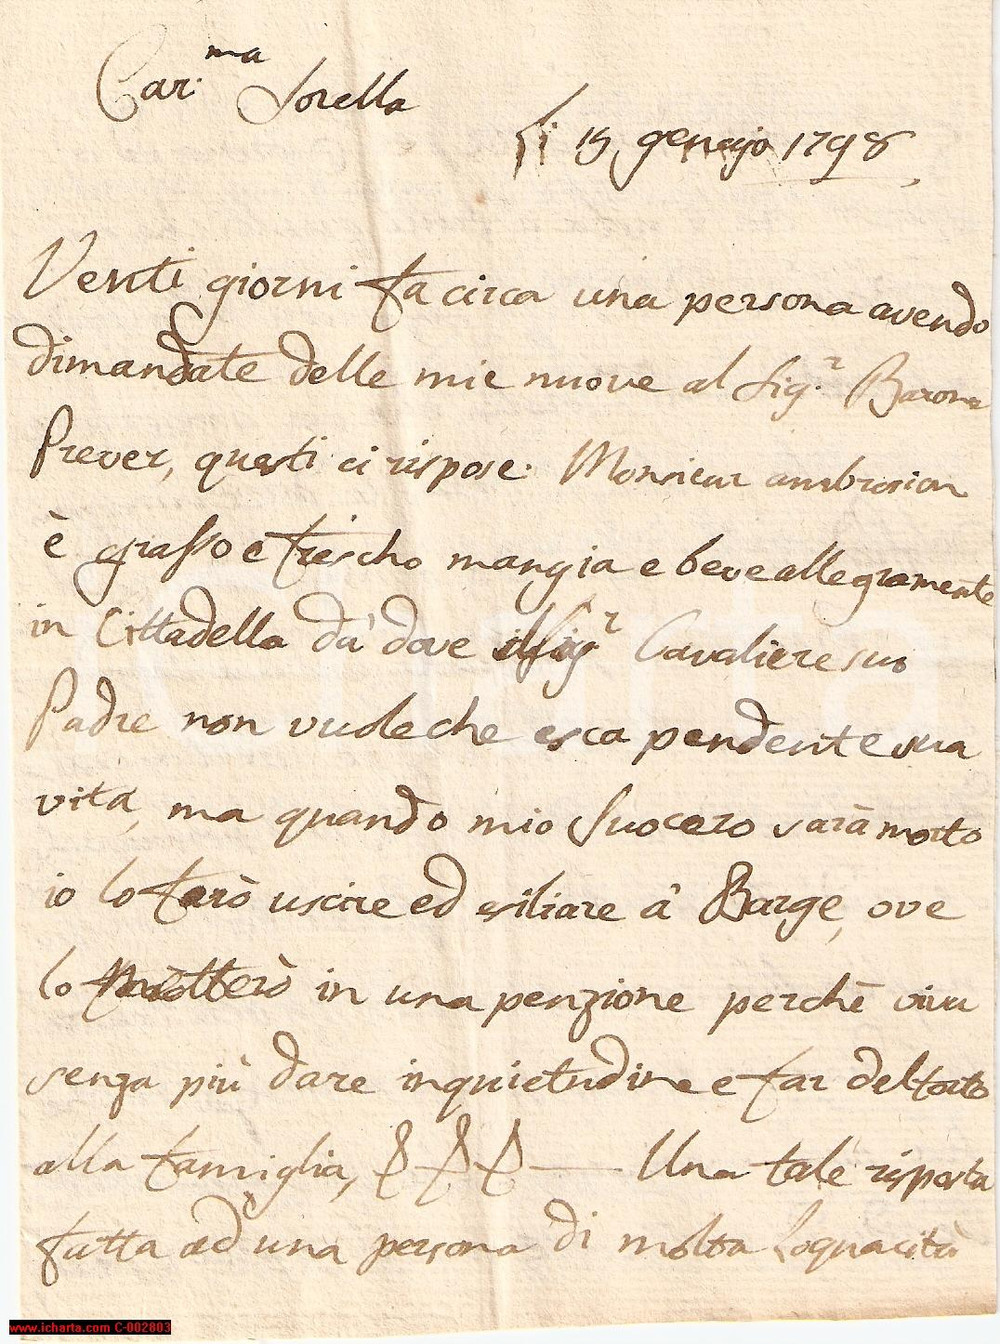 Car.ma Sorella
Li 15 genajo 1798
Venti giorni fa circa una persona avendo
dimandate delle mie nuove al Sig.r Barone
Prever, questi ci rispose: Monsieur ambrosian
è grasso e frescho mangia e beve allegramente
in Cittadella da' dove il Sig.r Cavaliere suo
Padre non vuole che esca pendente sua
vita, ma quando mio Suocero sarà morto
io lo farò uscire ed esiliare a' Barge, ove
lo metterò in una penzione perchè viva
senza più dare inquietudine e far del torto
alla famiglia, Una tale risposta
fatta ad una persona di molta Loquacità
www.icharta.com C-002803